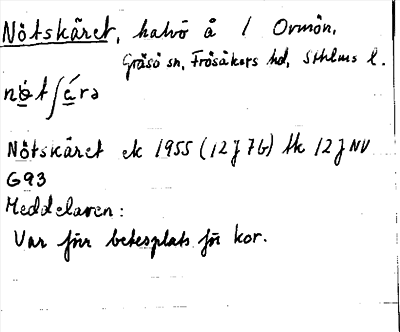 Nötskäret, halvö å / Ormön,
Gräsö sn, Frösåkers hd, Sthlms l.
nö́tʃä́rə
Nötskäret ek 1955 (12J7G) tk 12J NV
G93
Meddelaren:
Var förr betesplats för kor.